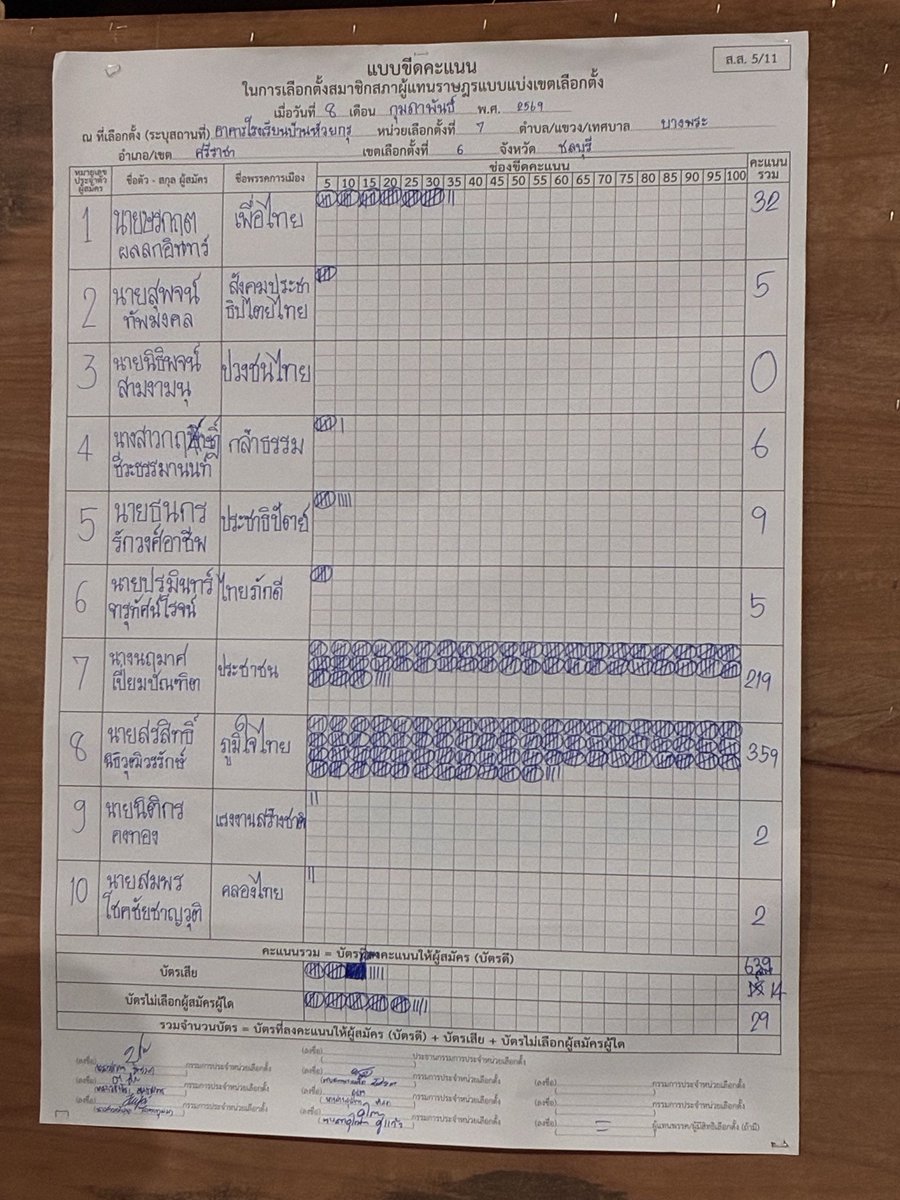 ส.ส. 5/11
แบบขีดคะแนน
ในการเลือกตั้งสมาชิกสภาผู้แทนราษฎรแบบแบ่งเขตเลือกตั้ง
เมื่อวันที่ 8 เดือน กุมภาพันธ์ พ.ศ. 2569
ณ ที่เลือกตั้ง (ระบุสถานที่) อาคารโรงเรียนบ้านห้วยกรุ หน่วยเลือกตั้งที่ 7 ตำบล/แขวง/เทศบาล บางพระ
อำเภอ/เขต ศรีราชา เขตเลือกตั้งที่ 6 จังหวัด ชลบุรี
หมายเลขประจำตัวผู้สมัคร ชื่อตัว - สกุล ผู้สมัคร ชื่อพรรคการเมือง ช่องขีดคะแนน คะแนนรวม
5 10 15 20 25 30 35 40 45 50 55 60 65 70 75 80 85 90 95 100
1 นาย เพื่อไทย 32
2 นายสุพจน์ สังคมประชา 5
ทัพมงคล ธิปไตยไทย
3 นายนิธิพจน์ ปวงชนไทย 0
สามงามนุ
4 นางสาว กล้าธรรม 6
ชีวะธรรมานนท์
5 นายธนกร ประชาธิปัตย์ 9
รักวงศ์อาชีพ
6 นายปรมินทร์ ไทยภักดี 5
จารุทัศน์ไรจน์
7 นางนฤมาศ ประชาชน 219
เปี่ยมบัณฑิต
8 นายสรสิทธิ์ ภูมิใจไทย 359
9 นายนิติกร แรงงานสร้างชาติ 2
คงทอง
10 นายสมพร คลองไทย 2
โชคชัยชาญวุติ
คะแนนรวม = บัตรที่ลงคะแนนให้ผู้สมัคร (บัตรดี) 639
บัตรเสีย 14
บัตรไม่เลือกผู้สมัครผู้ใด 29
รวมจำนวนบัตร = บัตรที่ลงคะแนนให้ผู้สมัคร (บัตรดี) + บัตรเสีย + บัตรไม่เลือกผู้สมัครผู้ใด
(ลงชื่อ) กรรมการประจำหน่วยเลือกตั้ง (ลงชื่อ) ประธานกรรมการประจำหน่วยเลือกตั้ง
(ลงชื่อ) กรรมการประจำหน่วยเลือกตั้ง (ลงชื่อ) กรรมการประจำหน่วยเลือกตั้ง (ลงชื่อ) กรรมการประจำหน่วยเลือกตั้ง
(ลงชื่อ) กรรมการประจำหน่วยเลือกตั้ง (ลงชื่อ) กรรมการประจำหน่วยเลือกตั้ง (ลงชื่อ) กรรมการประจำหน่วยเลือกตั้ง
(ลงชื่อ) กรรมการประจำหน่วยเลือกตั้ง (ลงชื่อ) ผู้แทนพรรค/ผู้มีสิทธิเลือกตั้ง (ถ้ามี)